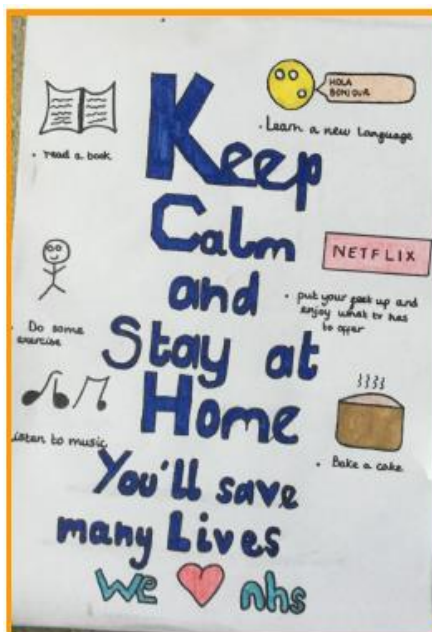 Keep
Calm
and
Stay at
Home
You'll save
many Lives
we nhs
• read a book
HOLA
BONJOUR
• Learn a new language
NETFLIX
• put your feet up and
enjoy what tv has
to offer
• Do some
exercise
Listen to music
• Bake a cake